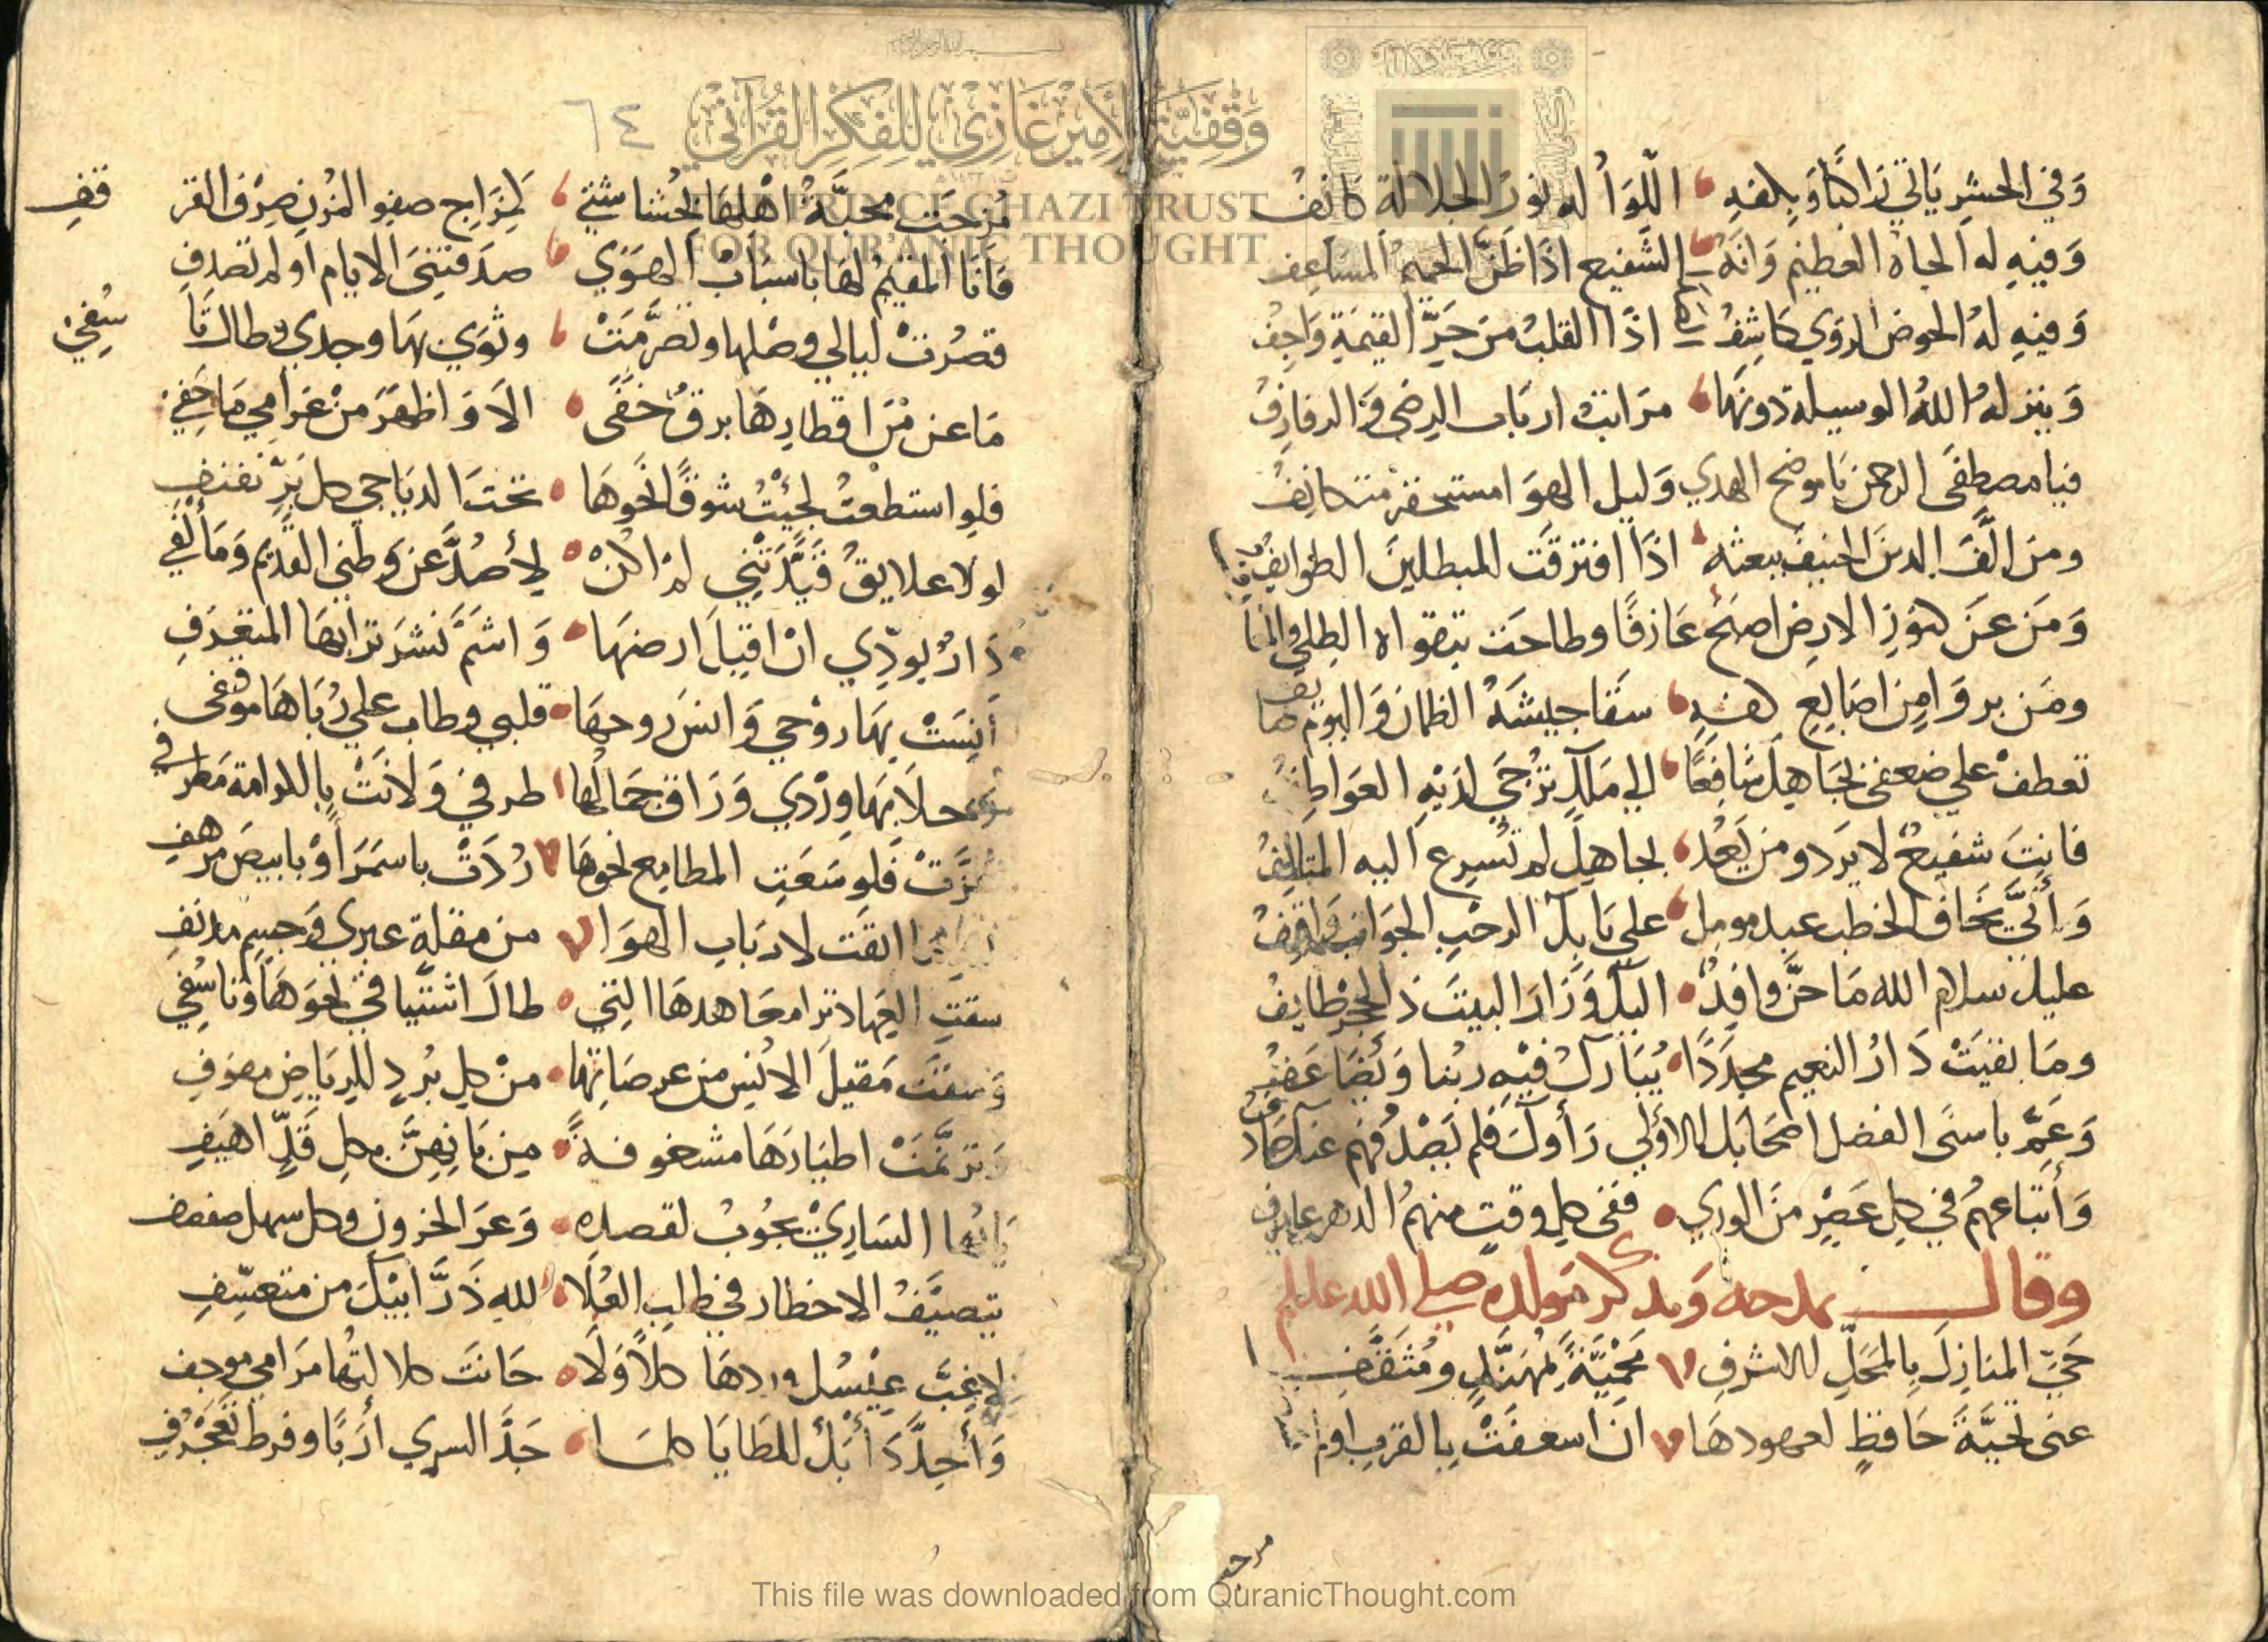 وَفي الحشرِ يَاتي رَاكبًا وَبكفهِ اللّوَاُ له نورُ الجلالة كانفُ
وَفيهِ له الجاه العظيم وَانهُ الشفيع اذا ظنّ الحميمُ المساعف
وَفيهِ لهُ الحوض الروي كاشفُ اذا القلبُ من حَرِّ القيمَةِ وَاجفُ
وَينزلهُ اللهُ الوسيلة دونهَا مرَاتبُ اربَاب الرضى وَالرفارفُ
فيا مصطفى الرحمن يَا موضح الهدي وَليل الهوَا مستحقر متكاثفُ
ومن الّفَ الدينَ الحنيفَ ببعثه اذا افترقت المبطلينَ الطوايفُ
وَمَن عَن كنوزِ الارض اصبحَ عَازفًا وطاحَت بتقواه الطلي والما
ومَن بروَا مِن اصَابِعِ كفهِ سقَا جيشَهُ الظمان وَاليوم صا يف
تعطفْ علي ضعفي بجَاهِكَ شافعًا الي مَلكٍ تُرْجَي لدَيْهِ العَوَاطِفُ
فانتَ شفيعٌ لا يرَد ومن يَعُد بجاهِكَ لم تُسرع اليه المتالفُ
وَأنّي يخَاف الخطب عبد مومل علي بَابِكَ الرحْبِ الجوَانبِ وَاقفُ
عليك سلام الله مَا حنَّ وافِدٌ اليك وَزَارَ البيتَ ذ الحِجْرِ طايفُ
ومَا بقيَتْ دَارُ النعيم مجدَّدًا يُبَارك فيْهِ ربُنا وَيُضَاعفُ
وَعَمّ باسنَى الفضل اصحَابَك الاوُلي رَأوكَ فلم يَصْدفهُم عنك صَادفُ
وَأتباعَهُم في كل عَصْرٍ منَ الوري ففي كل وقتٍ منهمُ الدهر عارف
وقال يمدحه وَيذكر مَولده صلي الله عليه
حَيِّ المنازلَ بالمحَلّ الاشرفِ مَحْمِيَّةً بمُهَنَّدٍ ومُثَقَّفِ
عني تحيّةَ حَافظٍ لعهودهَا ان اسعفَتْ بالقرب اولم
مزجَت
٦٤
مُزجَت محبّةُ اهْلهَا بحُشاشتي كمزَاج صفو المُزنِ صِرْفَ القر قفِ
فانا المقيمُ لهَا باسبَابْ الهوَي صدَقتني الايام او لم تصدِفِ
قصُرتْ ليالي وصْلها وتصَرّمَتْ وثوَي بهَا وجدي وطال تَا سُفي
مَا عن مُرَ اقطارهَا برقٌ خَفَى الاّ وَاظهَرَ منْ غرَامي مَا خفي
فلو استطعتُ لجيئْتُ شوقًا نحوهَا تحتَ الدياجي كل بَرٍّ نفنفِ
لولا علايقُ قيّدَتنِي لم اكنْ لأصُدَّ عن وطني القديم وَمَألفي
دَارٌ بودّي انْ اقبِلَ ارضهَا وَاشمّ نشرَ ترابهَا المتعرفِ
أنِسَتْ بهَا روْحي وَانسَ روحهَا قلبي وطاب علي رُبَاهَا موقفى
وحلا بهَا ورْدي وَرَاق جمَالُها طرفي وَلانَتْ بالملامة مَعَطرفي
عَزّتْ فلو سَعَتِ المطامِع نحوهَا رُدَتْ باسمَرَ اوْ بابيضَ مرهفِ
ابقَت لاربَاب الهوَا من مقلةٍ عبري وَجسم مدنفِ
سقتِ العِهاد ترا معَاهدهَا التي طال اشتياقي نحوَهَا وتَاسُفي
وَسقتَ مَقيلَ الانس من عرصَاتها منْ كل بُردٍ للريَاض مفوفِ
وَترنّمَتْ اطيَارهَا مشغوفةً مِن بَانِهنَّ بكل قَدٍّ اهيَفِ
يَا ايُها السَاريْ يجُوبُ لقصده وَعرَ الحزون وكل سهل صفصف
يتصيَّفُ الاخطار في طلبِ العُلَا لله ذَرّ ابيْكَ من متعسّفِ
لا غبَّ عِيْسُك وردهَا كلاًّ وَلَا خانَت كلالتُها مرَامي موجف
وَأجدَّدَابُك للمَطَايَا كلمَا جَدَّ السري أدَبًا وفرط تعجْرُفِ
وَقفيّة الأمير غازي للفكر القرآني
THE PRINCE GHAZI TRUST
FOR QUR'ANIC THOUGHT
This file was downloaded from QuranicThought.com